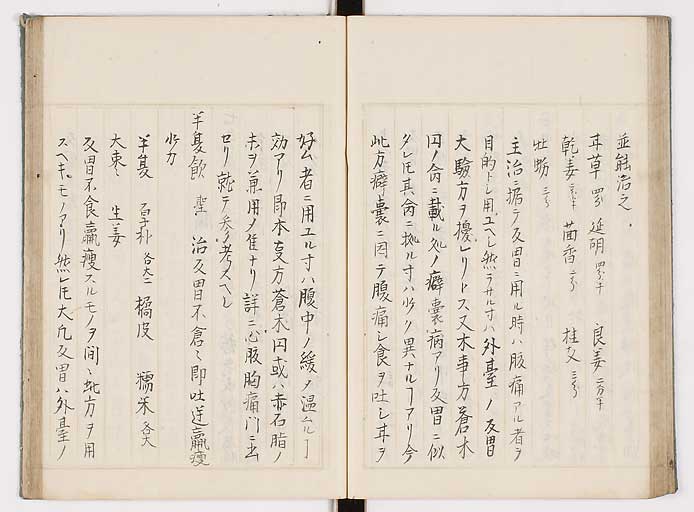 並能治之、
甘草 罗 延明 罗半 良姜 二分半
乾姜 二分半 茴香 二分 桂支 三分
牡蛎 三分
主治ニ据テ反胃ニ用ル時ハ腹痛アル者ヲ
目的トし用ユヘし然ラサル寸ハ外臺ノ反胃
大驗方ヲ優レリトス又本事方蒼朮
円ノ命ニ載ル処ノ癖嚢病アリ反胃ニ似
タレ𪜈其命ニ拠ル寸ハ少ク異ナルヿアリ今
此方癖嚢ニ因テ腹痛し食ヲ吐し甘ヲ
好ム者ニ用ユル寸ハ腹中ノ緩メ温ムルノ
効アリ即本支方蒼朮円或ハ赤石脂ノ
末ヲ兼用メ佳ナリ詳ニ心腹胸痛門ニ出
セリ就テ参考スヘし
半夏飲 聖 治反胃不食ニ即吐逆羸瘦
少力
半夏 厚朴 各大二 橘皮 糯米 各大
大棗ニ 生姜
反胃不食羸瘦スルモノヲ间ニ此方ヲ用
スヘキモノアリ然レ𪜈大凡反胃ハ外臺ノ